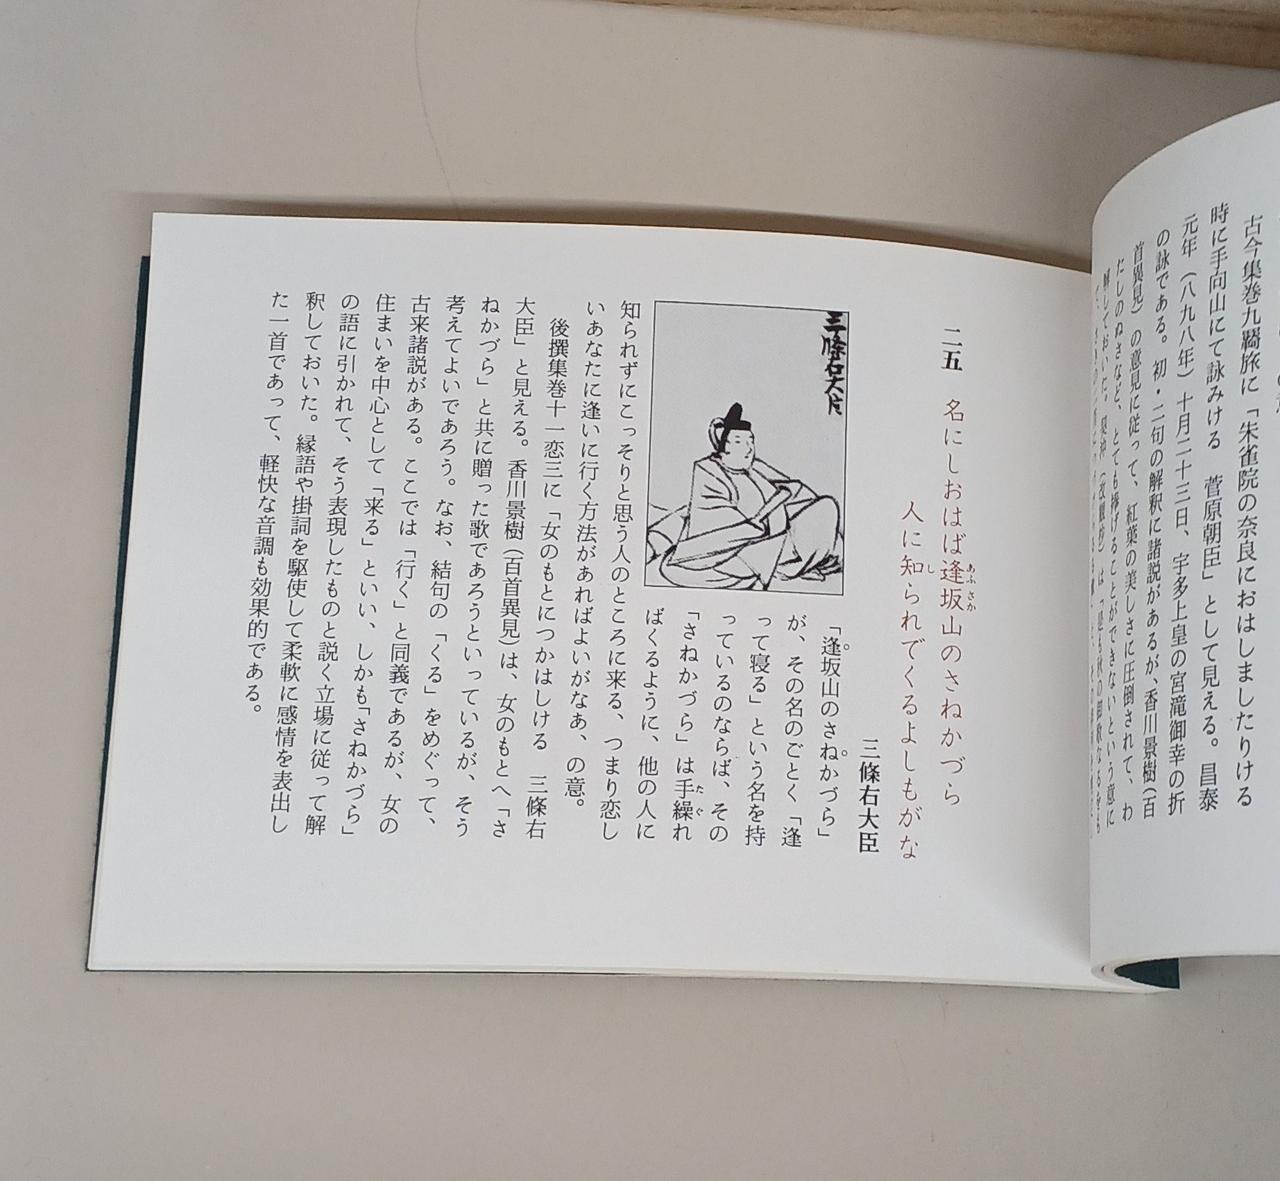 古今集巻九羇旅に「朱雀院の奈良におはしましたりける
時に手向山にて詠みける　菅原朝臣」として見える。昌泰
元年（八九八年）十月二十三日、宇多上皇の宮滝御幸の折
の詠である。初・二句の解釈に諸説があるが、香川景樹（百
首異見）の意見に従って、紅葉の美しさに圧倒されて、わ
たしのぬさなど、とても捧げることができないという意に
解しておいた。
二五　名にしおはば逢坂山のさねかづら
あふさか
人に知られでくるよしもがな
し
三條右大臣
三條右大臣
「逢坂山のさねかづら」
が、その名のごとく「逢
って寝る」という名を持
っているのならば、その
「さねかづら」は手繰れ
たぐ
ばくるように、他の人に
知られずにこっそりと思う人のところに来る、つまり恋し
いあなたに逢いに行く方法があればよいがなあ、の意。
後撰集巻十一恋三に「女のもとにつかはしける　三條右
大臣」と見える。香川景樹（百首異見）は、女のもとへ「さ
ねかづら」と共に贈った歌であろうといっているが、そう
考えてよいであろう。なお、結句の「くる」をめぐって、
古来諸説がある。ここでは「行く」と同義であるが、女の
住まいを中心として「来る」といい、しかも「さねかづら」
の語に引かれて、そう表現したものと説く立場に従って解
釈しておいた。縁語や掛詞を駆使して柔軟に感情を表出し
た一首であって、軽快な音調も効果的である。